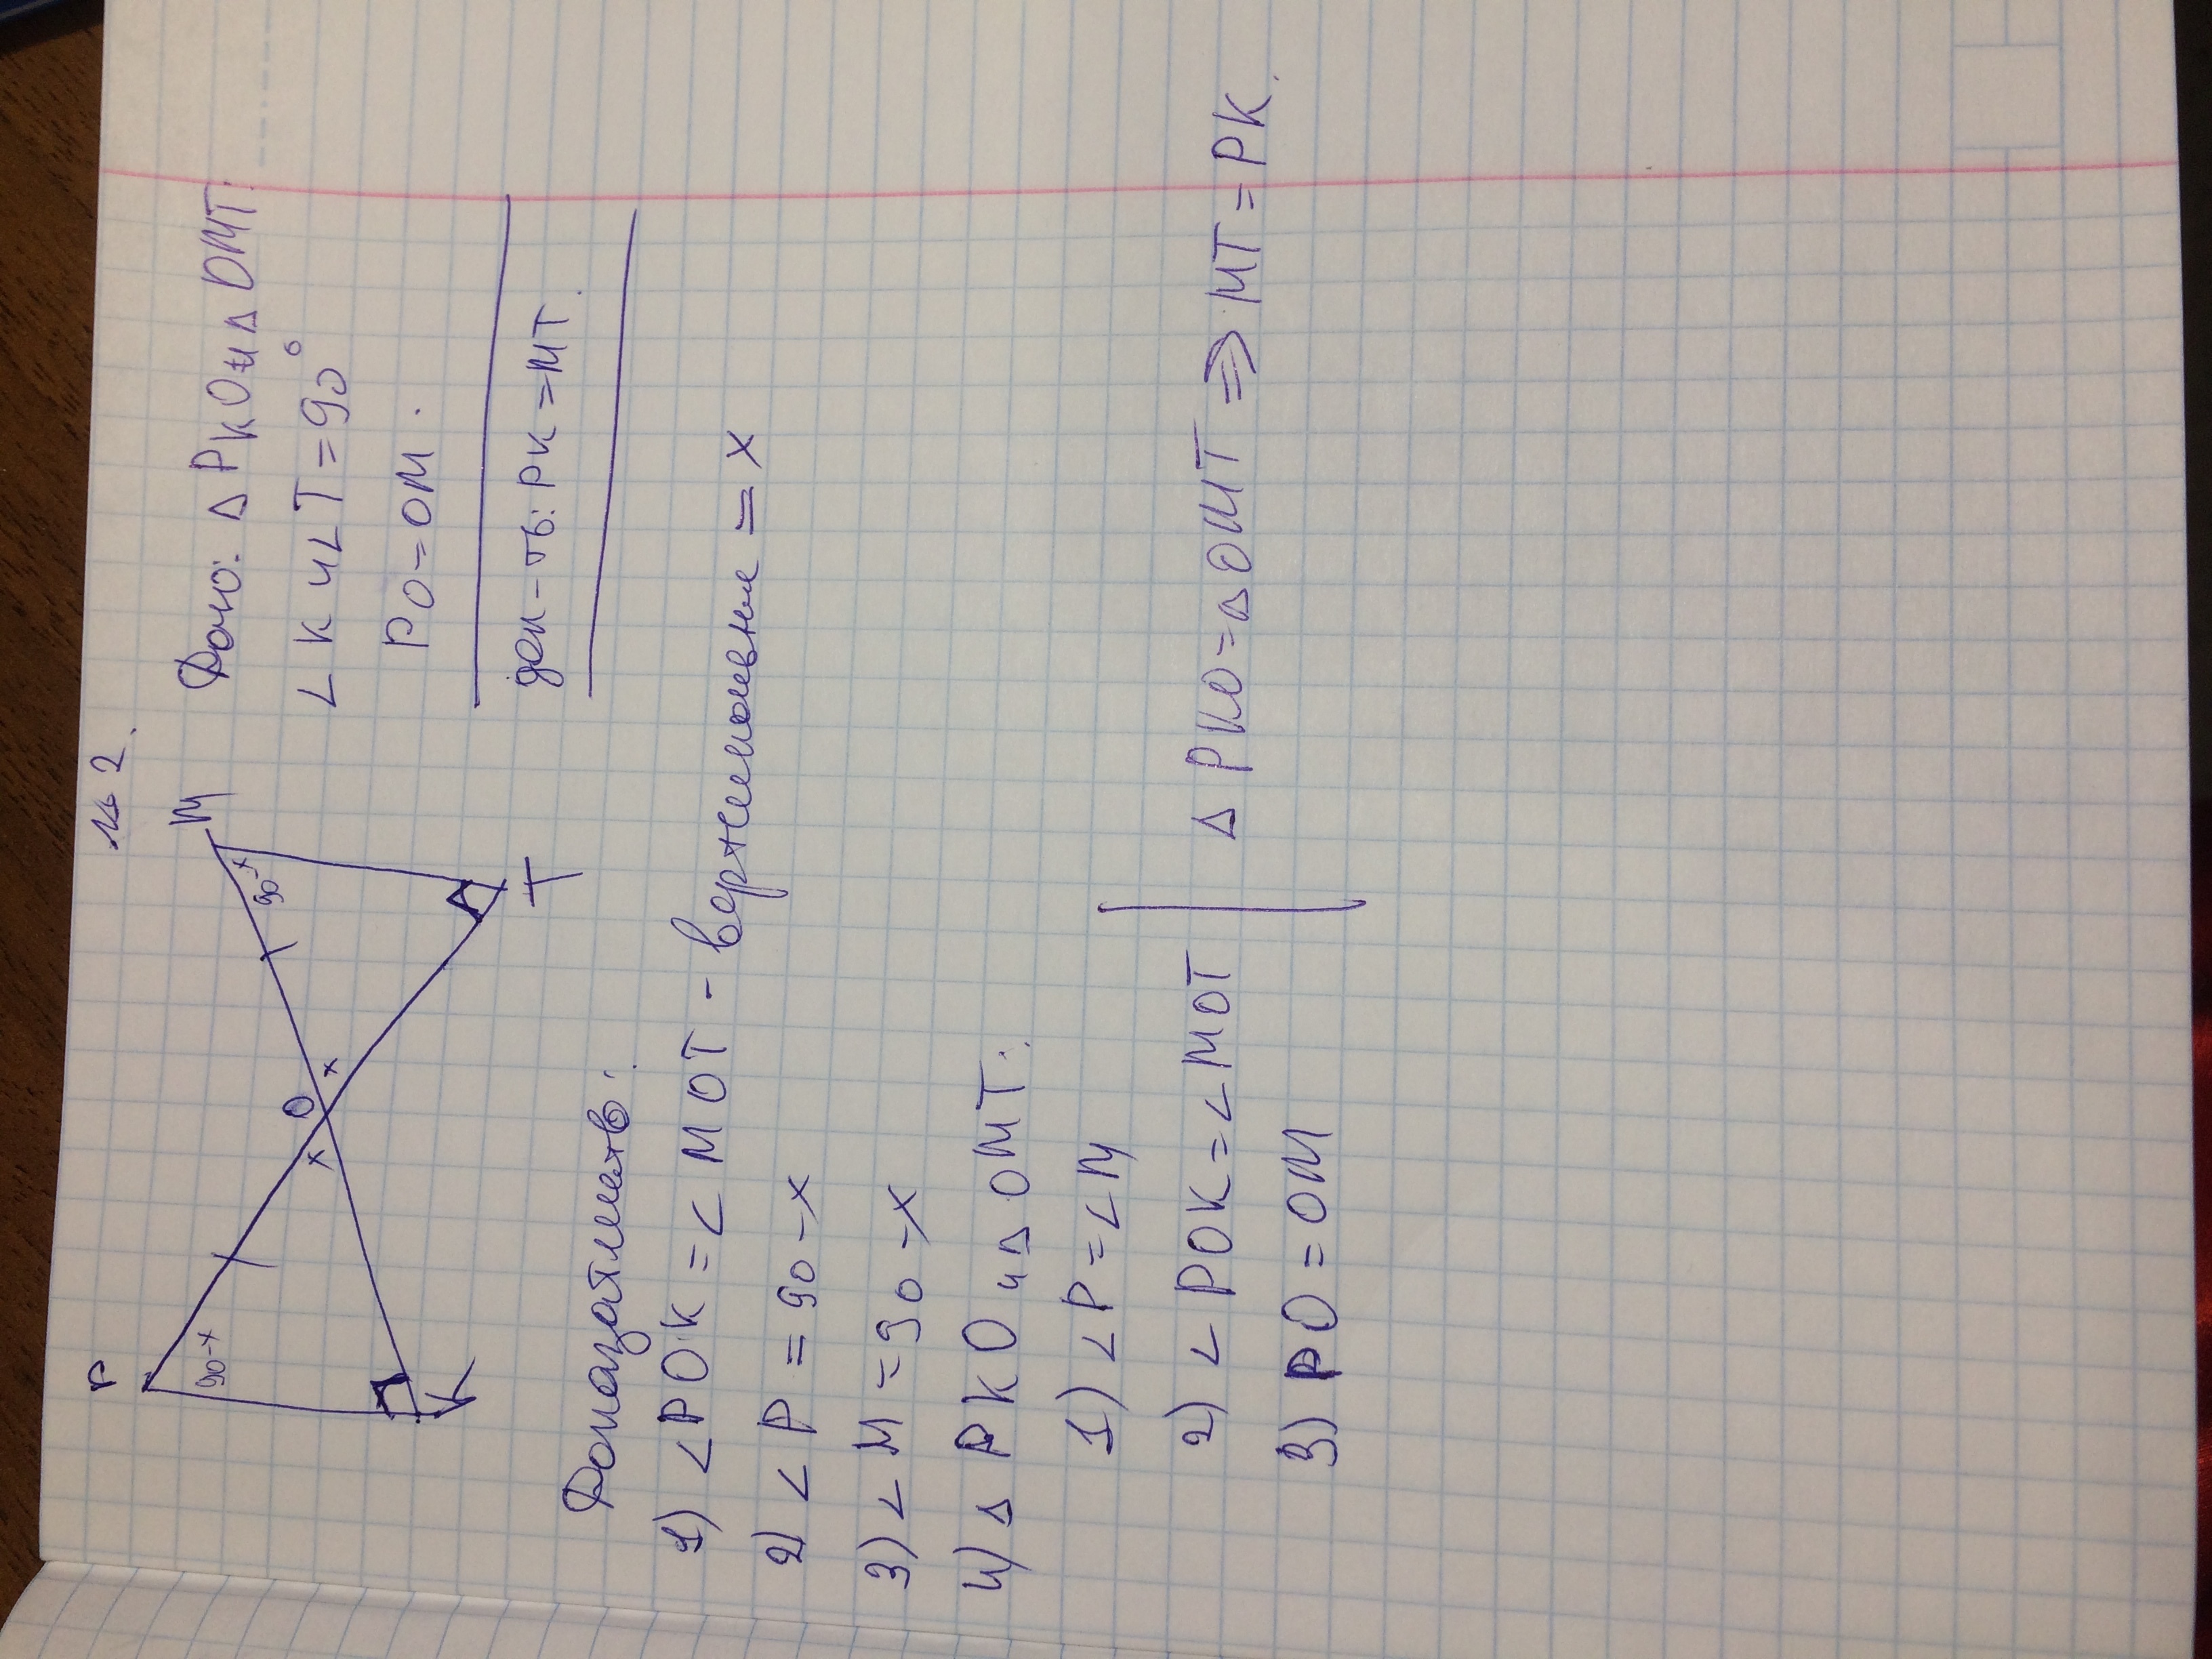 № 2.
P
M
O
K
T
90-x
90-x
x
x
Дано: Δ PKO и Δ OMT.
∠ K и ∠T = 90°
PO = OM.
док-ть: PK = MT.
Доказательств:
1) ∠POK = ∠ MOT - вертикальные = x
2) ∠ P = 90 - x
3) ∠ M = 90 - x
4) Δ PKO и Δ OMT:
1) ∠P = ∠M
2) ∠ POK = ∠MOT
Δ PKO = Δ OMT ⇒ MT = PK.
3) PO = OM